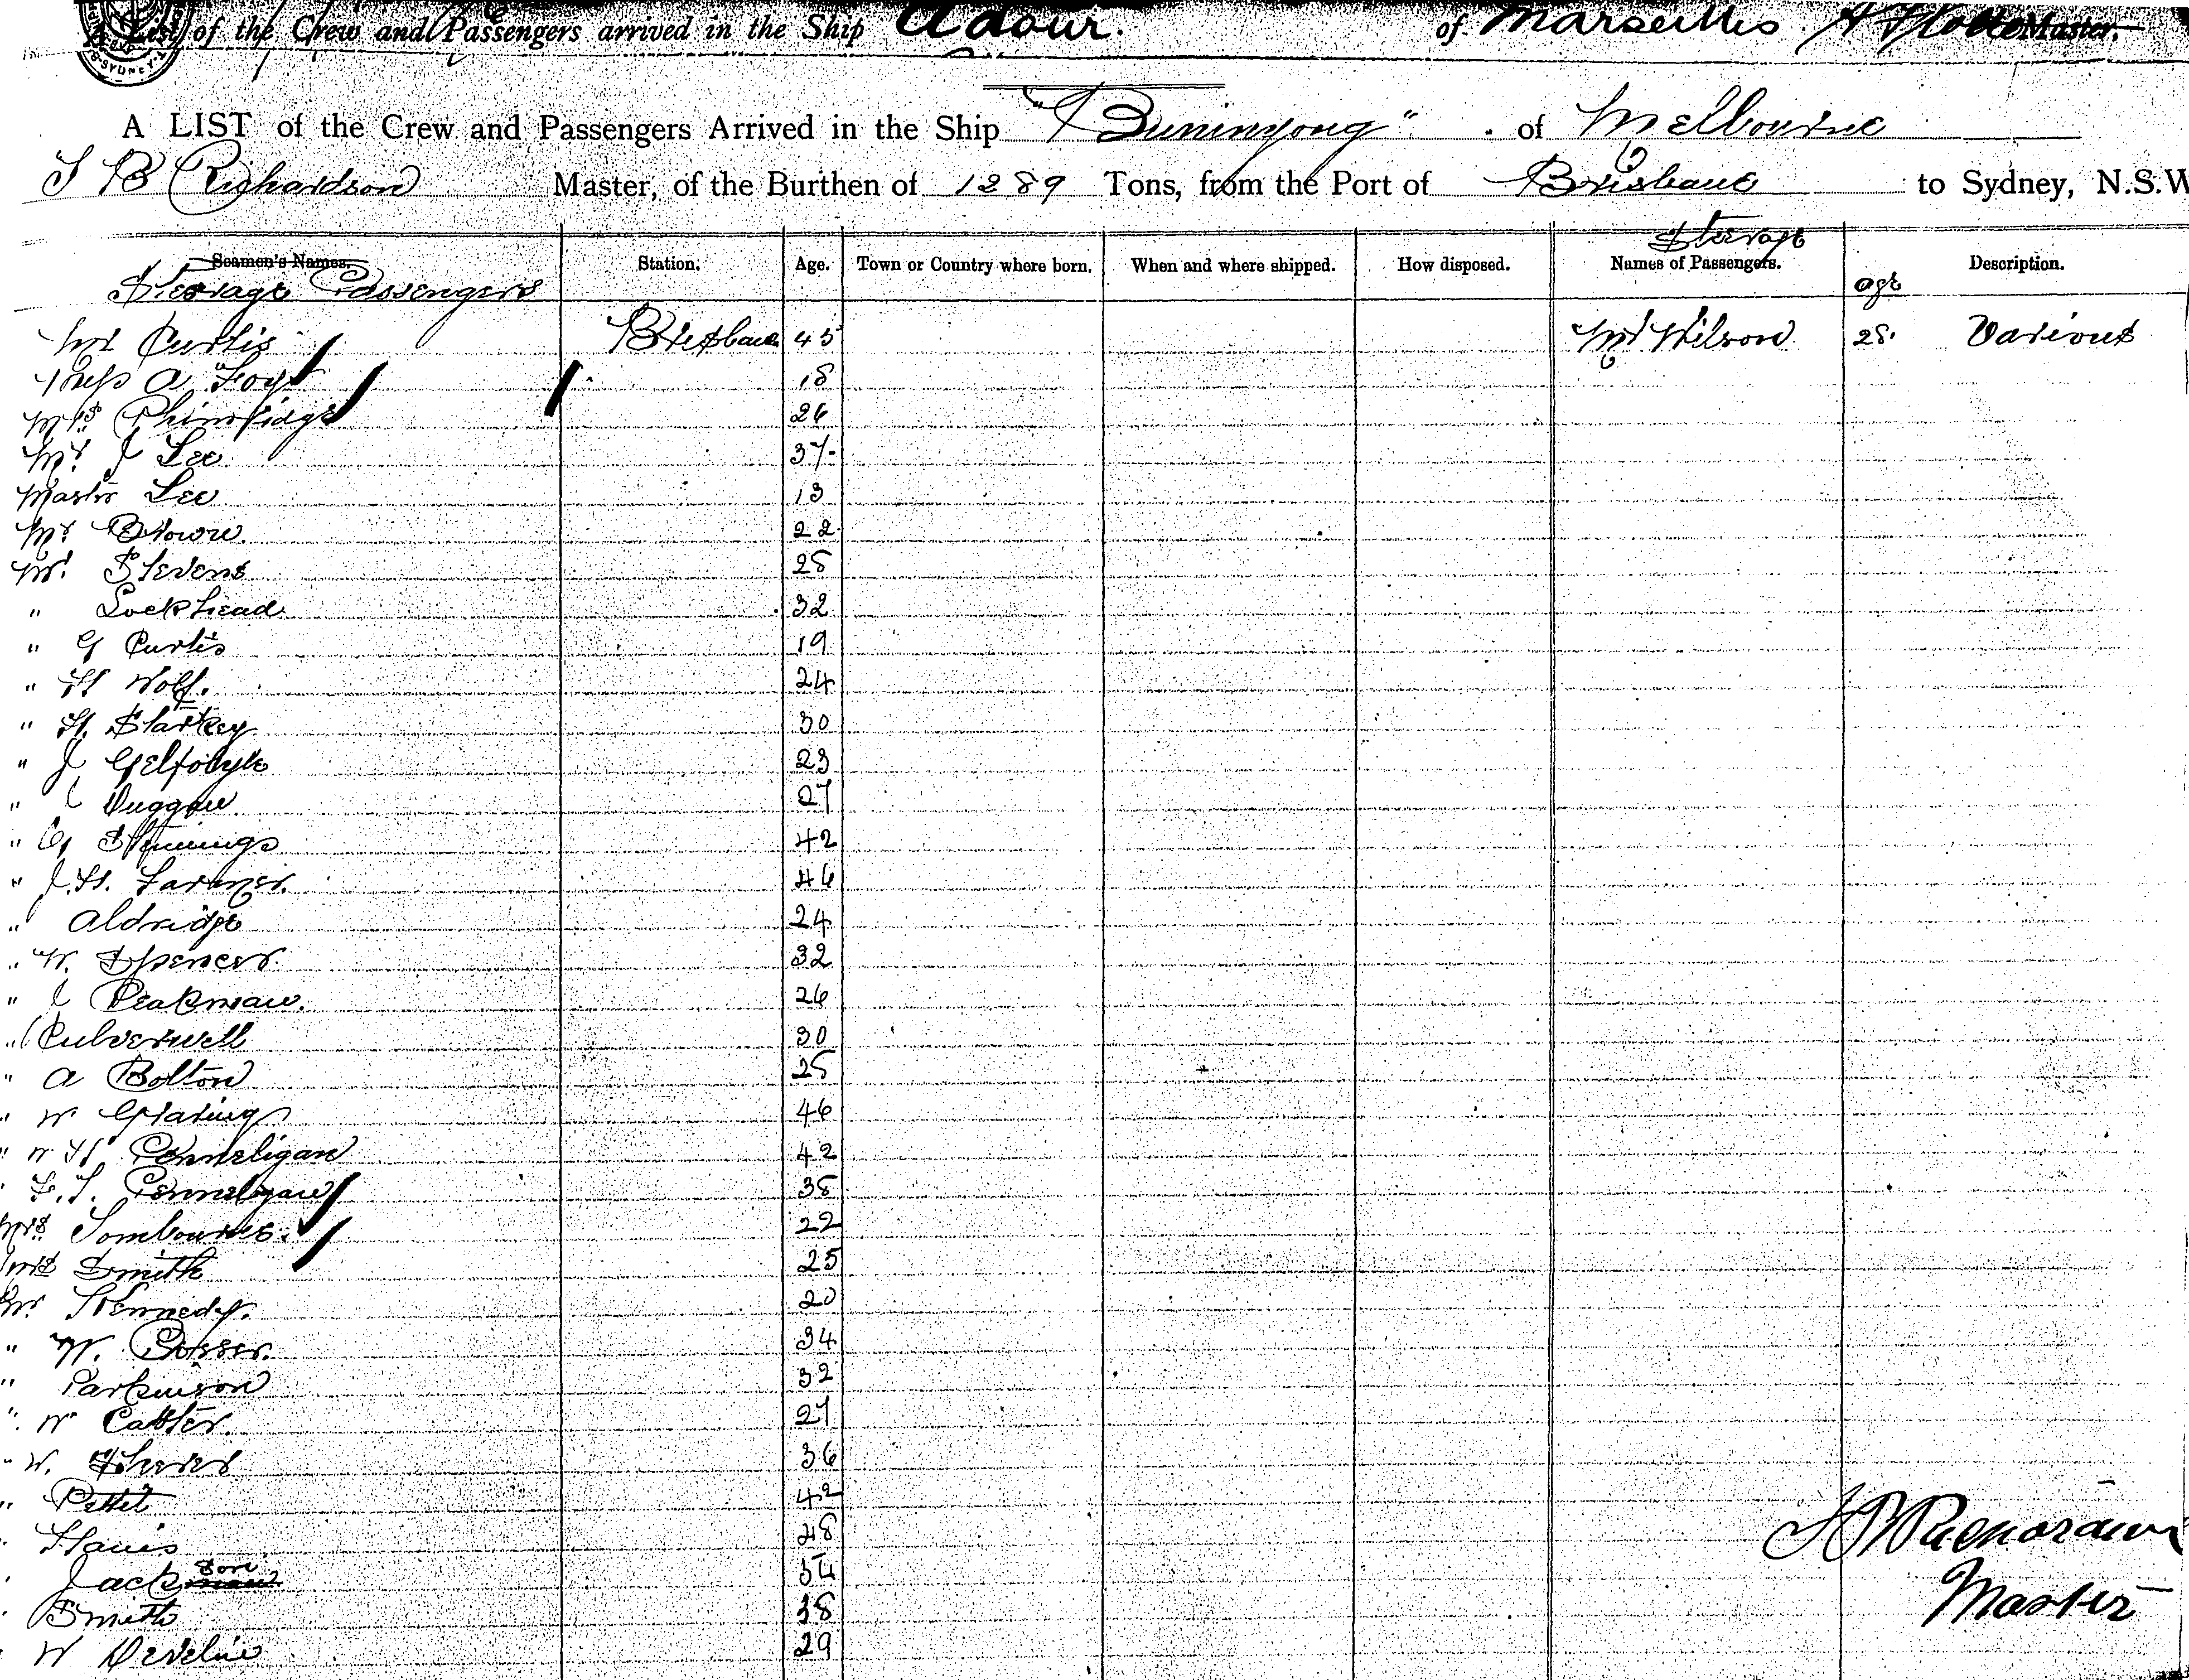 List of the Crew and Passengers arrived in the Ship Adour. of Marseilles Master.
SYDNEY
A LIST of the Crew and Passengers Arrived in the Ship "Buninyong" of Melbourne
J B Richardson Master, of the Burthen of 1289 Tons, from the Port of Brisbane to Sydney, N.S.W
Seamen's Names. Station. Age. Town or Country where born. When and where shipped. How disposed. Steerage Names of Passengers. age Description.
Steerage Passengers
Mr Curtis Brisbane 45 Mr Wilson 28. Various
Miss A Foy 18
Mrs 26
Mr J Lee 37
Master Lee 13
Mr Brown 22
Mr Stevens 28
" Lockhead 32
" G Curtis 19
" H Wolf. 24
" H. Starkey 30
" J 23
" J Duggan 27
" G 42
" J. H. Farmer. 46
" Aldridge 24
" W. Spencer 32
" J Peakman. 26
" Culverwell 30
" A Bolton 25
" W 46
" W H Penneligan 42
" F. J. Penneligan 38
Mrs Sombourne. 22
Mrs Smith 25
Mr Kennedy. 20
" W. 34
" Parkinson 32
" W 27
" W. 36
" Pettet 42
28
Jackson 54
Smith 38
W Develin 29
Master